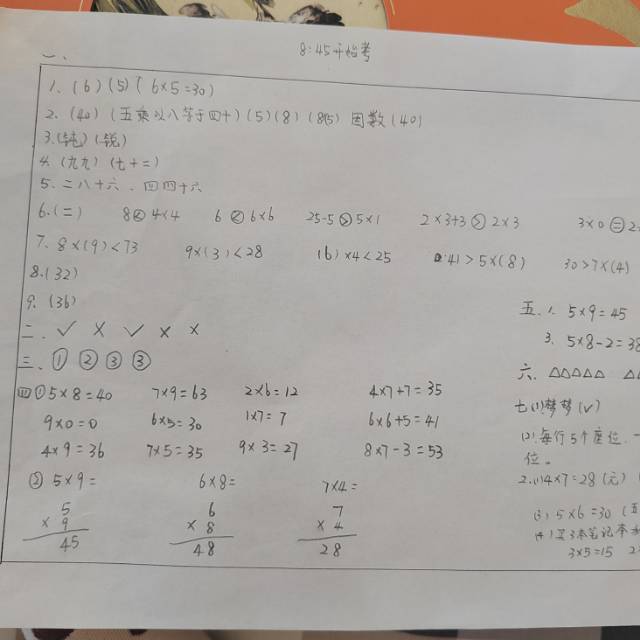 8:45开始考
一、
1. (6) (5) (6×5=30)
2. (40) (五乘以八等于四十) (5) (8) (8和5) 因数 (40)
3. (钝) (锐)
4. (九九) (七十二)
5. 二八十六、四四十六
6. (=) 8<4×4 6<6×6 25-5>5×1 2×3+3>2×3 3×0=2
7. 8×(9)<73 9×(3)<28 (6)×4<25 41>5×(8) 30>7×(4)
8. (32)
9. (36)
二、✓ × ✓ × ×
三、① ② ③ ③
四①5×8=40 7×9=63 2×6=12 4×7+7=35
9×0=0 6×5=30 1×7=7 6×6+5=41
4×9=36 7×5=35 9×3=27 8×7-3=53
② 5×9= 6×8= 7×4=
5 6 7
×9 ×8 ×4
45 48 28
五、1. 5×9=45
3. 5×8-2=38
六、△△△△△
七(1)梦梦(✓)
(2)每行5个座位,一
位。
2.(1)4×7=28(元)
(3) 5×6=30
(4) 买3本笔记本
3×5=15